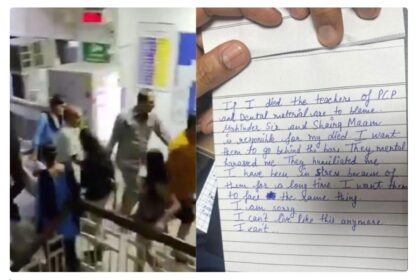 If I died the teachers of PCP
and Dental material are to blame.
Mahinder Sir and Shairg Maam
is responsible for my died I want
them to go behind the bars. They mental
harassed me They humiliated me
I have been in stress because of
them for a long time. I want them
to face the same thing.
I am sorry
I can't live like this anymore
I cant...